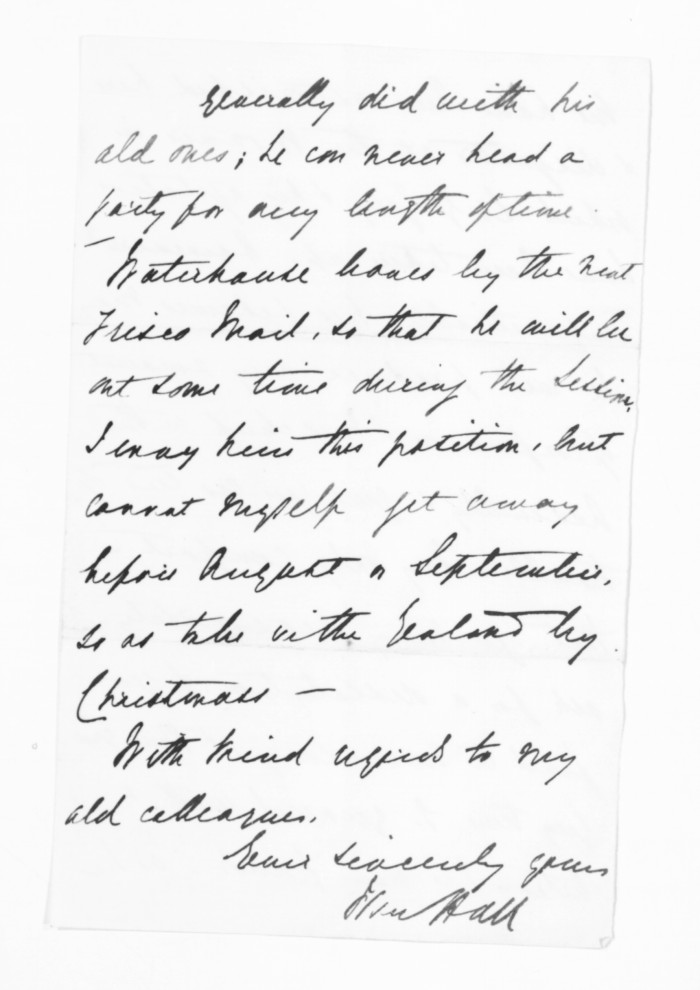 generally did with his
old ones; he can never head a
party for any length of time.
Waterhouse leaves by the next
Frisco Mail, so that he will be
out some time during the Session.
I envy him this position, but
cannot myself get away
before August or September,
so as to be in the Zealand by
Christmas —
With kind regards to my
old colleagues.
Ever sincerely yours
Hall